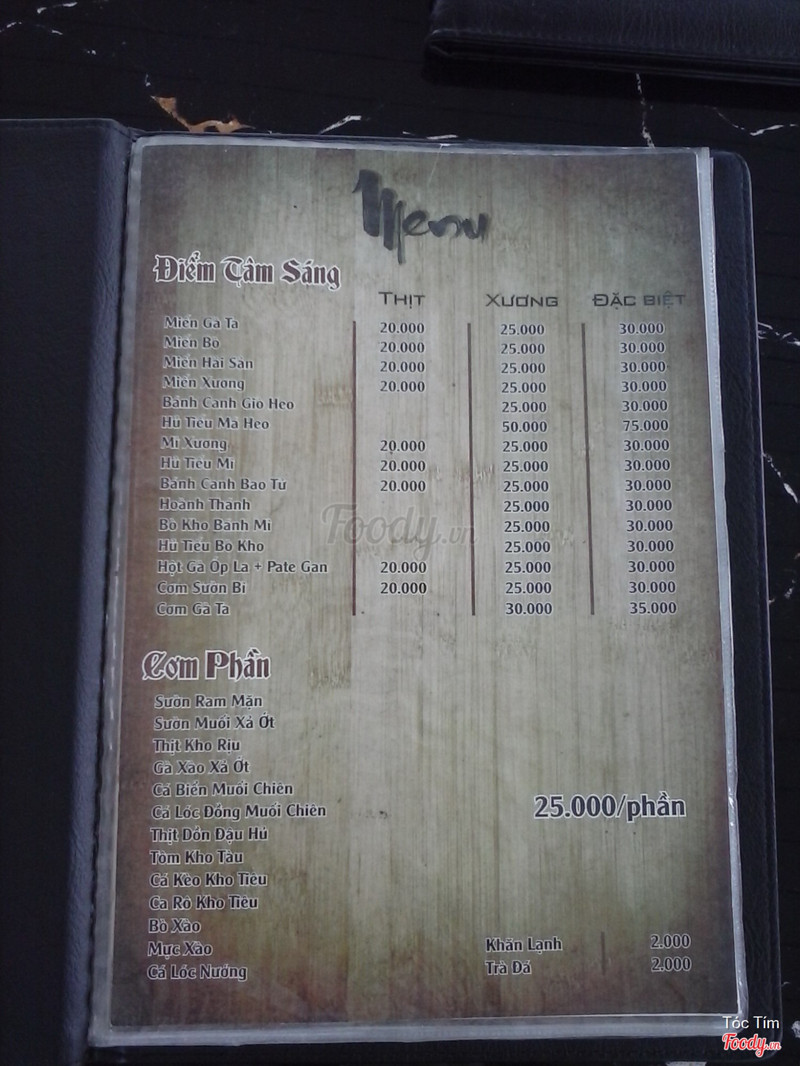 Menu
Điểm Tâm Sáng
Thịt Xương Đặc biệt
Miến Gà Ta 20.000 25.000 30.000
Miến Bò 20.000 25.000 30.000
Miến Hải Sản 20.000 25.000 30.000
Miến Xương 20.000 25.000 30.000
Bánh Canh Giò Heo 25.000 30.000
Hủ Tiếu Mã Heo 50.000 75.000
Mì Xương 20.000 25.000 30.000
Hủ Tiếu Mì 20.000 25.000 30.000
Bánh Canh Bao Tử 20.000 25.000 30.000
Hoành Thánh 25.000 30.000
Bò Kho Bánh Mì 25.000 30.000
Hủ Tiếu Bò Kho 25.000 30.000
Hột Gà Ốp La + Pate Gan 20.000 25.000 30.000
Cơm Sườn Bì 20.000 25.000 30.000
Cơm Gà Ta 30.000 35.000
Foody.vn
Cơm Phần
Sườn Ram Mặn
Sườn Muối Xả Ớt
Thịt Kho Rịu
Gà Xào Xả Ớt
Cá Biển Muối Chiên
Cá Lóc Đồng Muối Chiên 25.000/phần
Thịt Dồn Đậu Hủ
Tôm Kho Tàu
Cá Kèo Kho Tiêu
Cá Rô Kho Tiêu
Bò Xào
Mực Xào Khăn Lạnh 2.000
Cá Lóc Nướng Trà Đá 2.000
Tóc Tím
Foody.vn